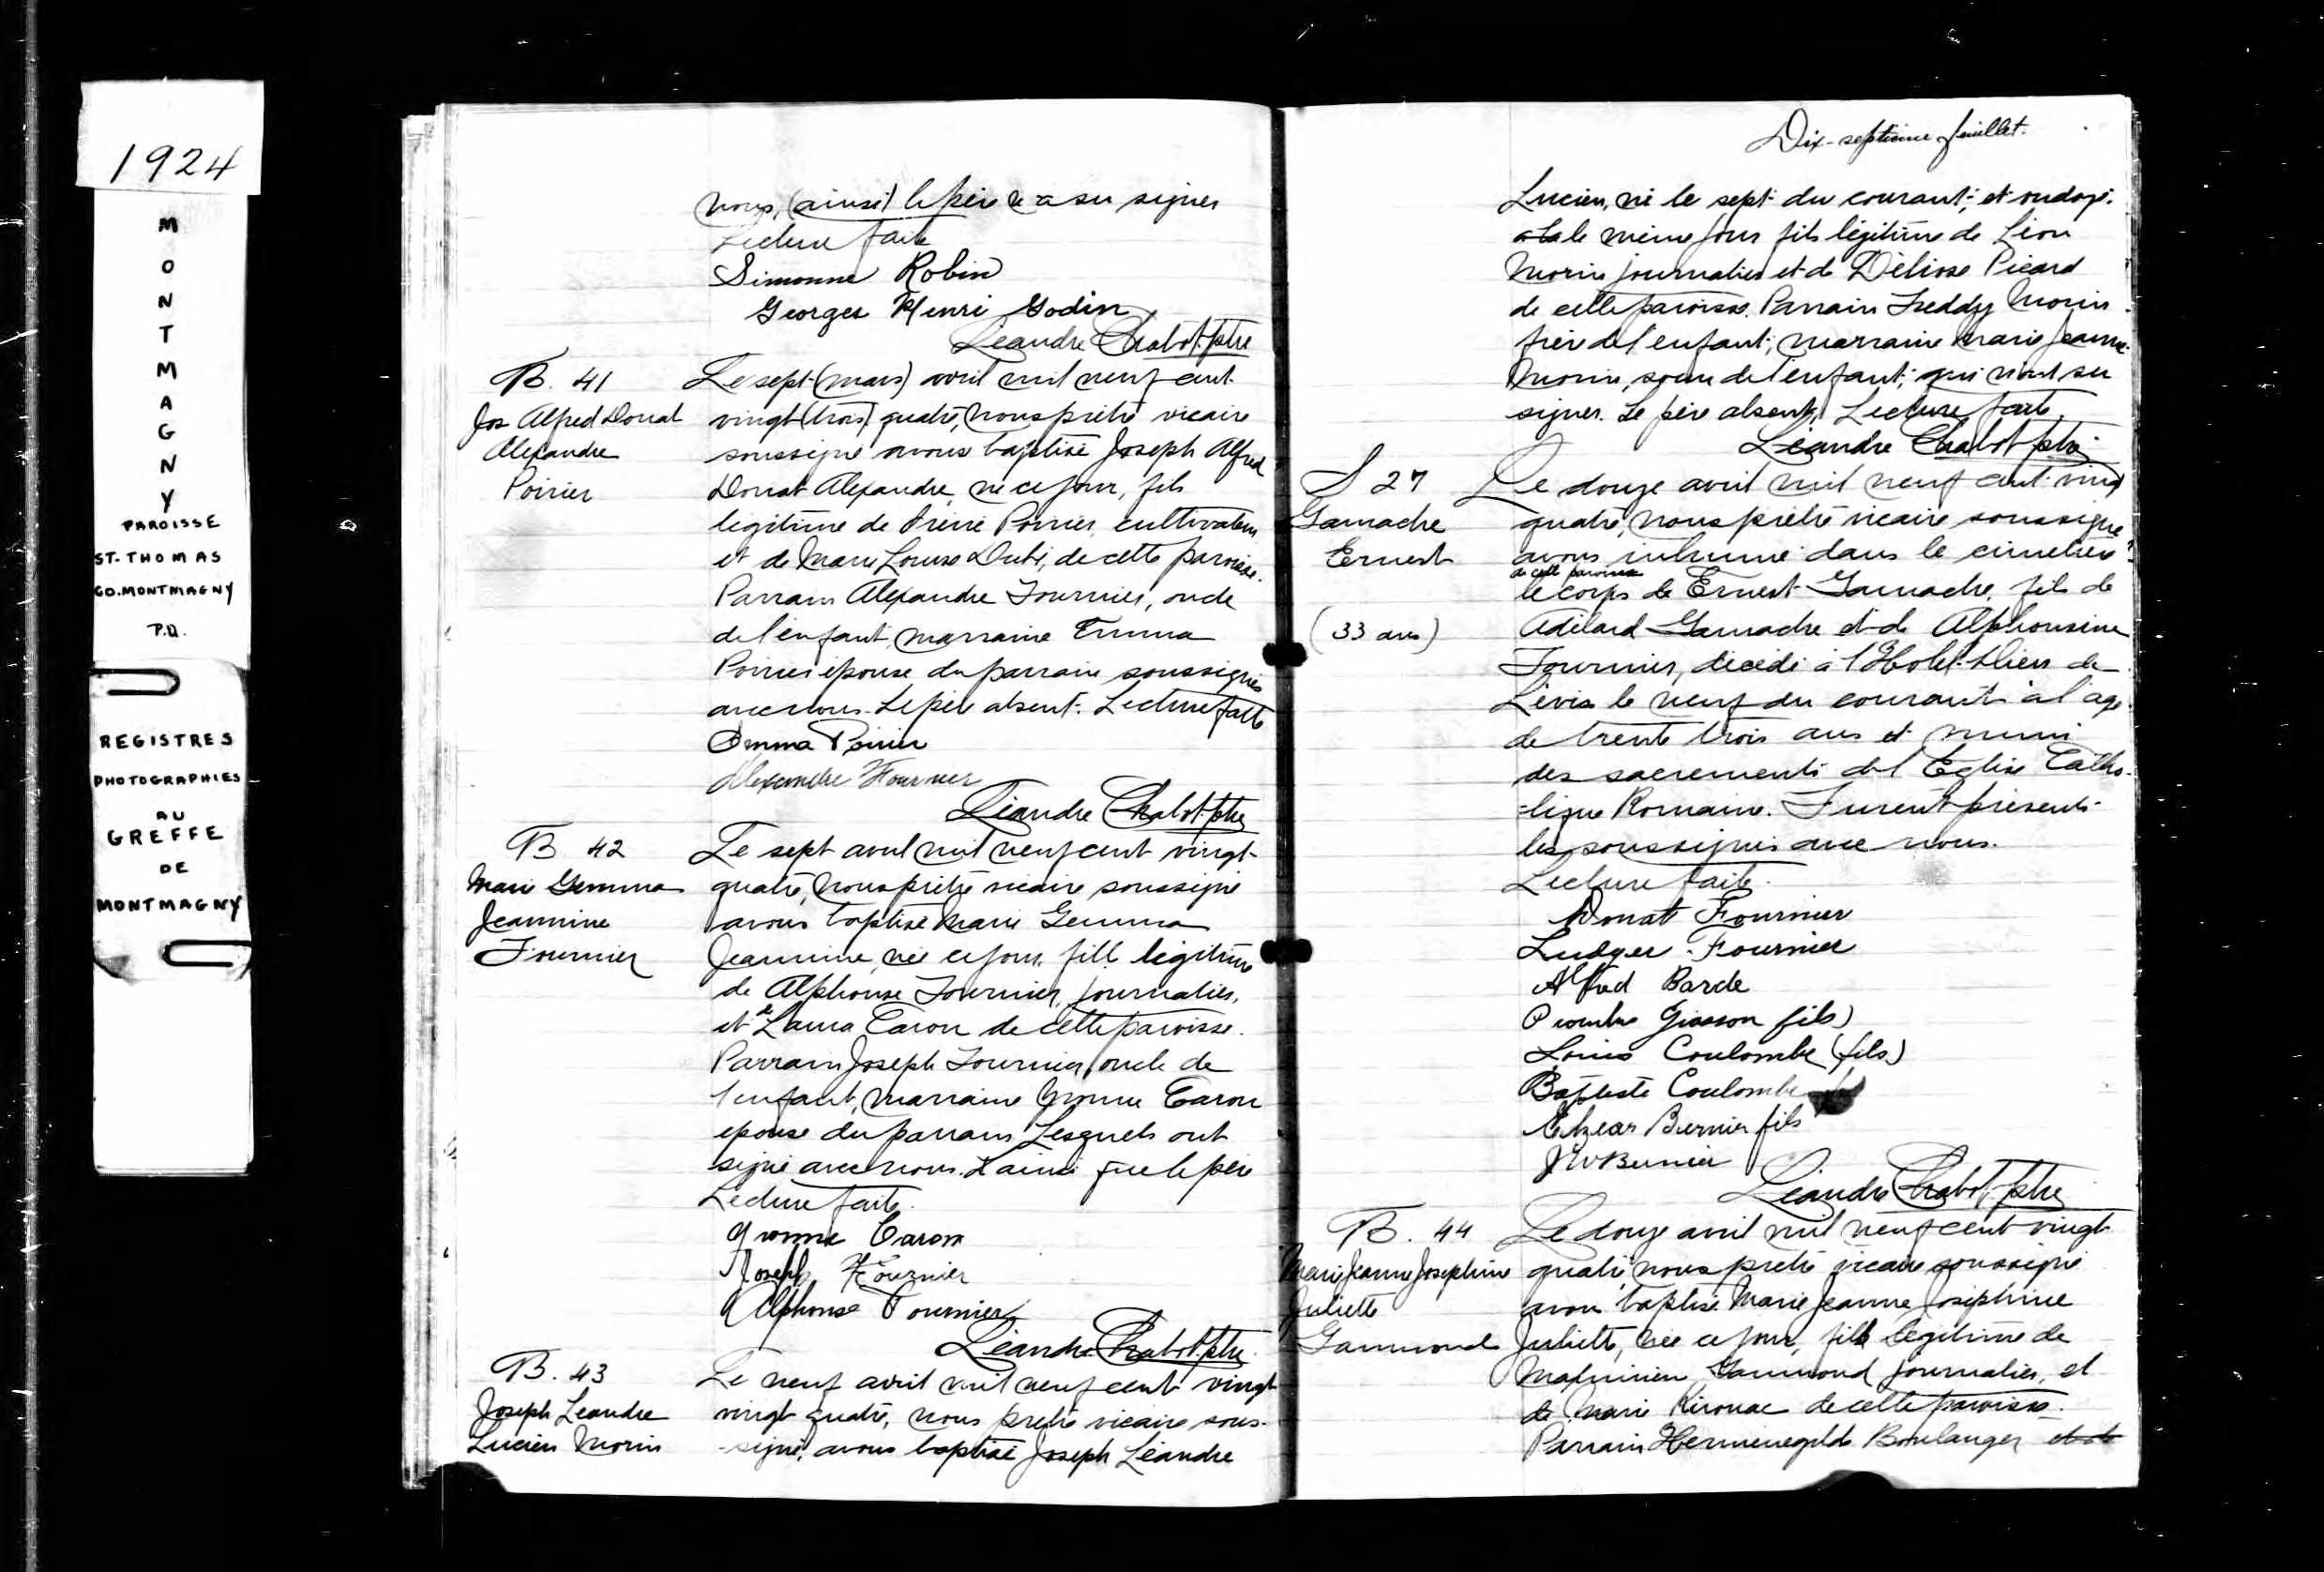 1924
MONTMAGNY
PAROISSE
ST-THOMAS
CO. MONTMAGNY
P.Q.
REGISTRES
PHOTOGRAPHIES
AU
GREFFE
DE
MONTMAGNY
nous, (ainsi) le père n'a su signer
Lecture faite
Simonne Robin
Georges Henri Godin
Léandre Chabot ptre
B. 41
Jos Alfred Donat
Alexandre
Poirier
Le sept (mars) avril mil neuf cent
vingt (trois) quatre, nous prêtre vicaire
soussigné avons baptisé Joseph Alfred
Donat Alexandre, né ce jour, fils
légitime de Pierre Poirier, cultivateur
et de Marie Louise Dubé, de cette paroisse.
Parrain Alexandre Fournier, oncle
de l'enfant, marraine Emma
Poirier épouse du parrain soussignés
avec nous. Le père absent. Lecture faite
Emma Poirier
Alexandre Fournier
Léandre Chabot ptre
B 42
Marie Gemma
Jeannine
Fournier
Le sept avril mil neuf cent vingt-
quatre, nous prêtre vicaire soussigné
avons baptisé Marie Gemma
Jeannine, née ce jour, fille légitime
de Alphonse Fournier, journalier,
et de Laura Caron de cette paroisse.
Parrain Joseph Fournier, oncle de
l'enfant, marraine Yvonne Caron
épouse du parrain Lesquels ont
signé avec nous ainsi que le père
Lecture faite.
Yvonne Caron
Joseph Fournier
Alphonse Fournier
Léandre Chabot ptre
B. 43
Joseph Leandre
Lucien Morin
Le neuf avril mil neuf cent vingt
vingt quatre, nous prêtre vicaire sous-
-signé, avons baptisé Joseph Léandre
Dix-septième feuillet.
Lucien, né le sept du courant, et ondoyé
le même jour fils légitime de Léon
Morin journalier et de Déliose Picard
de cette paroisse. Parrain Freddy Morin
frère de l'enfant, marraine Marie Jeanne
Morin, soeur de l'enfant, qui n'ont su
signer. Le père absent. Lecture faite,
Léandre Chabot ptre
S 27
Gamache
Ernest
(33 ans)
Le douze avril mil neuf cent vingt
quatre, nous prêtre vicaire soussigné
avons inhumé dans le cimetière
de cette paroisse
le corps de Ernest Gamache, fils de
Adélard Gamache et de Alphonsine
Fournier, décédé à l'Hotel-Dieu de
Lévis le neuf du courant à l'age
de trente trois ans et muni
des sacrements de l'Eglise Catho-
-lique Romaine. Furent présents
les soussignés avec nous.
Lecture faite.
Donat Fournier
Ludger Fournier
Alfred Barde
Giasson fils)
Louis Coulombe (fils)
Baptiste Coulombe
Elzear Bernier fils
J W Bernier
Léandre Chabot ptre
B. 44
Marie Jeanne Josephine
Juliette
Gammond
Le douze avril mil neuf cent vingt
quatre nous prêtre vicaire soussigné
avons baptisé Marie Jeanne Joséphine
Juliette, née ce jour, fille légitime de
Maximien Gammond journalier, et
de Marie Kirouac de cette paroisse.
Parrain Hermenegilde Boulanger et de